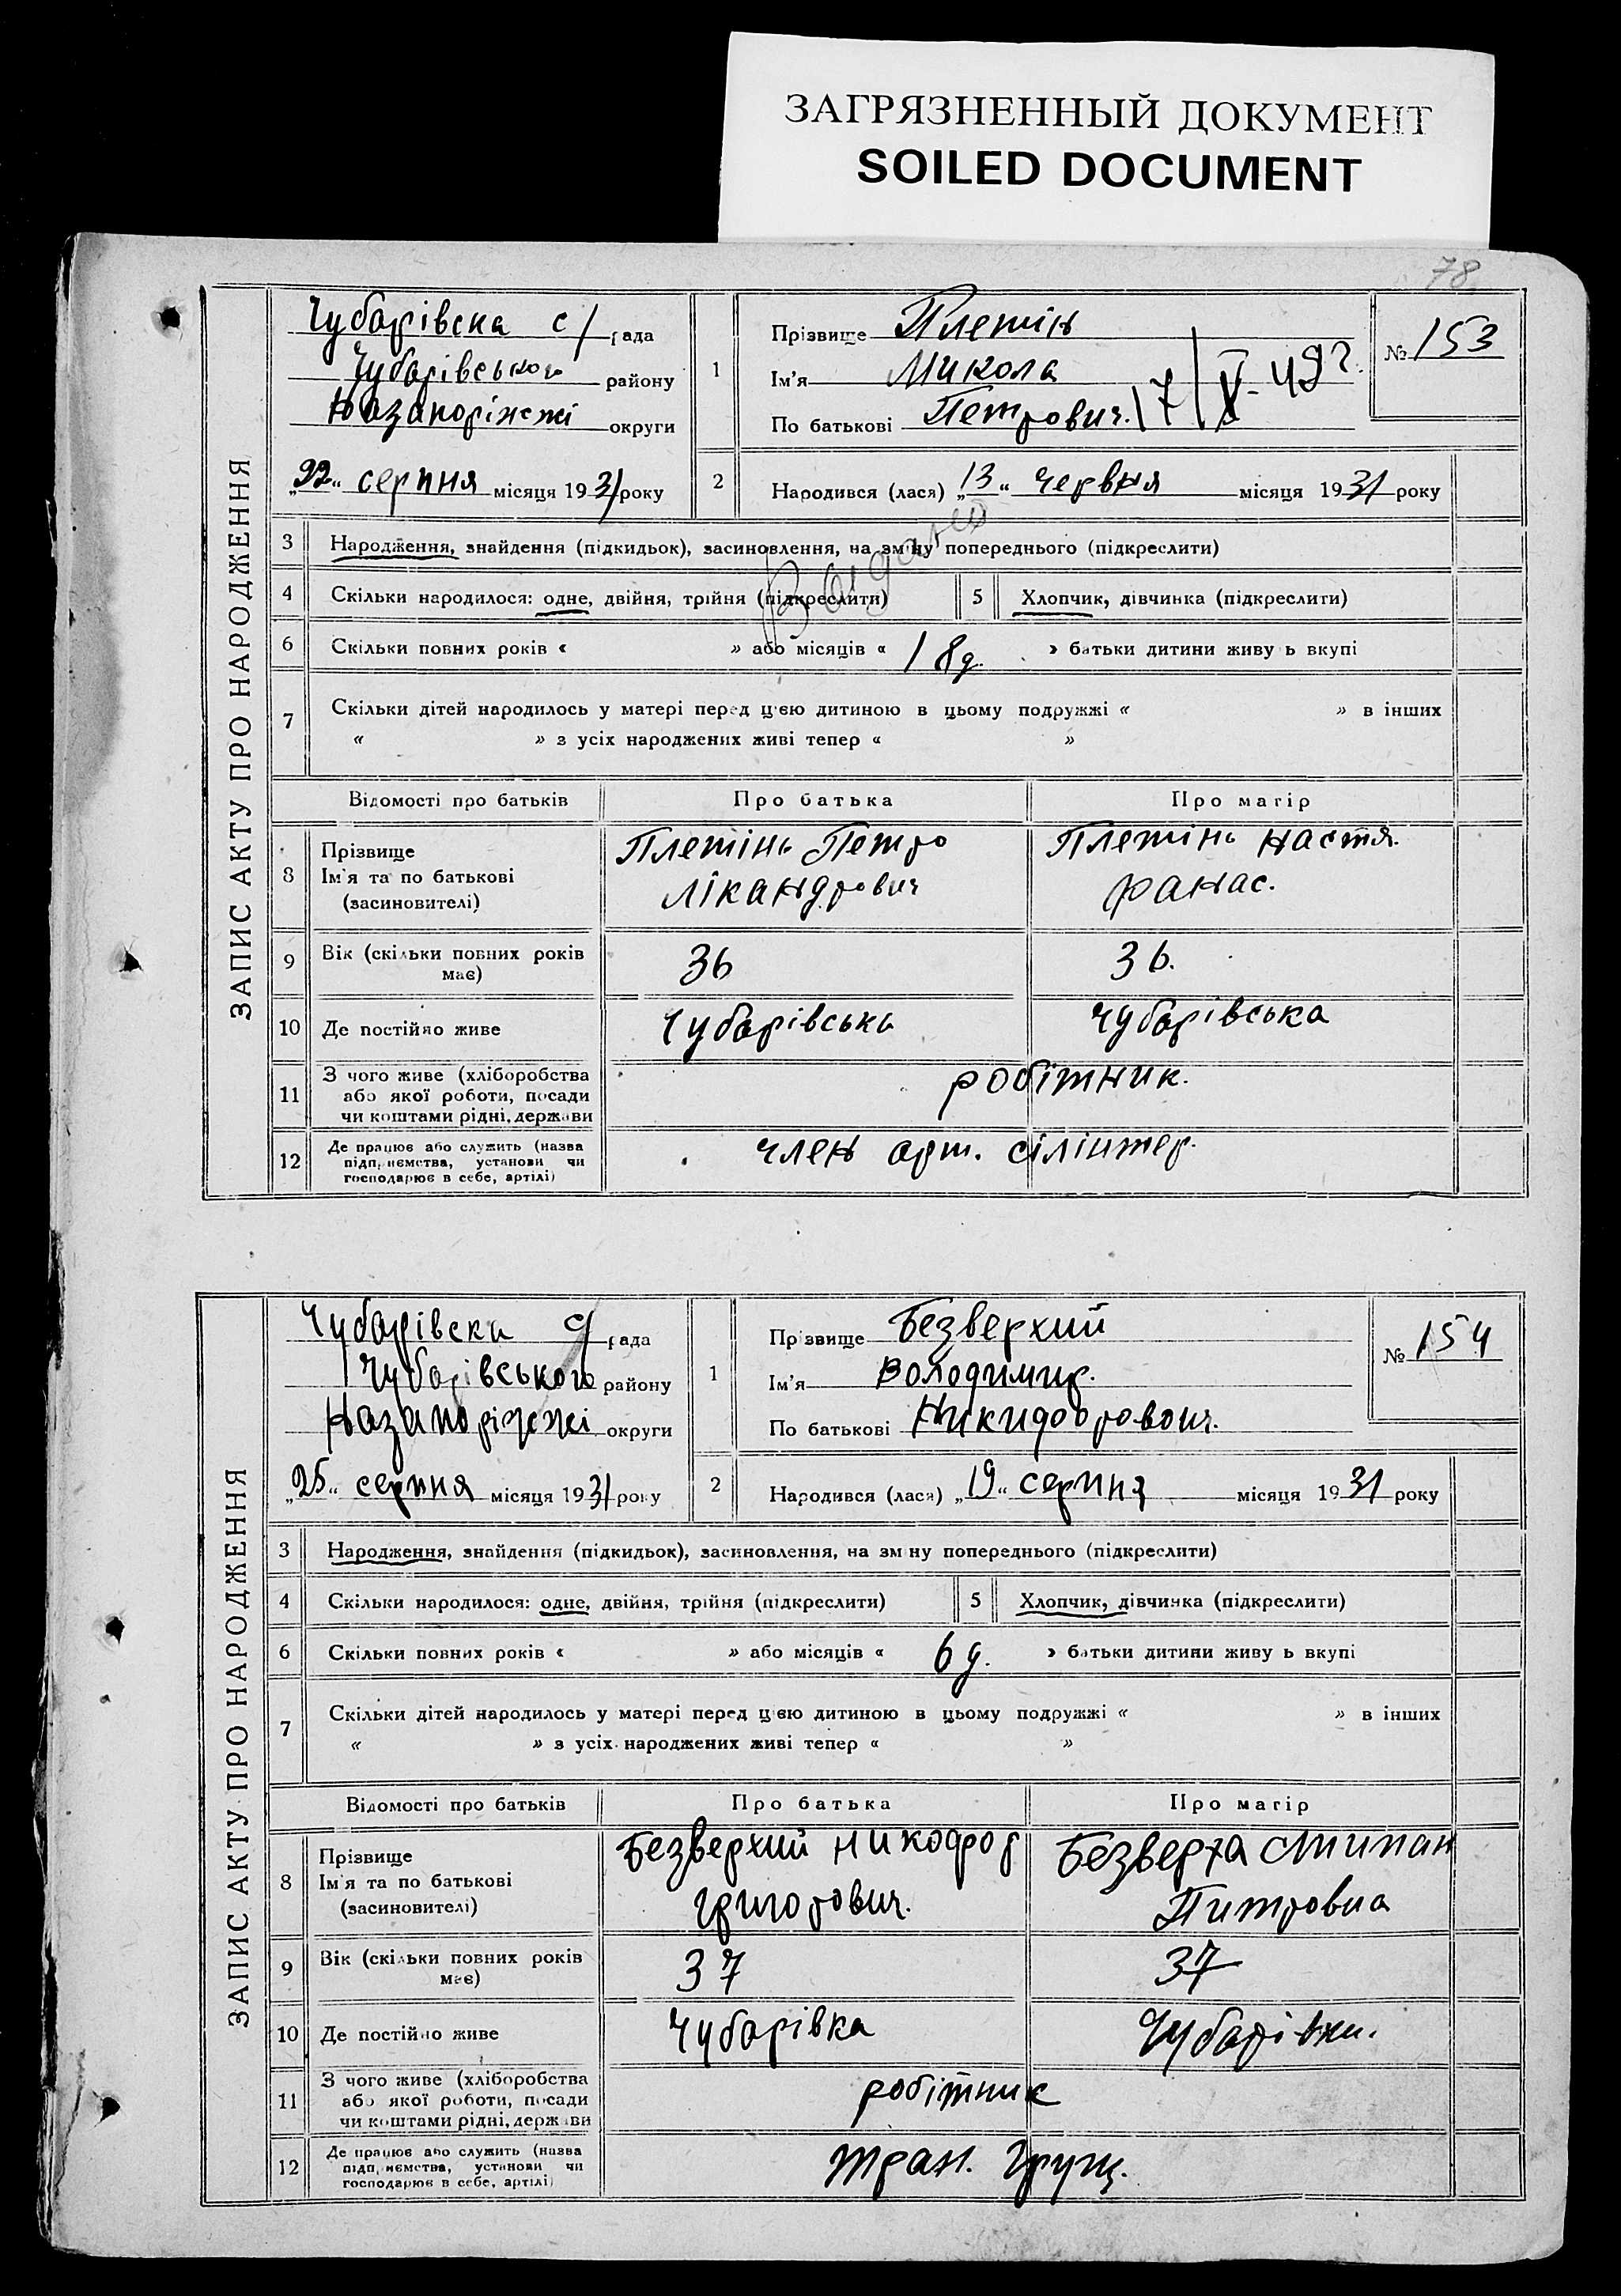 ЗАГРЯЗНЕННЫЙ ДОКУМЕНТ
SOILED DOCUMENT
78
ЗАПИС АКТУ ПРО НАРОДЖЕННЯ
Чубарівска с/рада
Чубарівського району
округи
„22“ серпня місяця 1931 року
1
Прізвище Плетінь
Ім'я Микола
По батькові Петрович. 17/V-49г.
№ 153
2
Народився (лася) „13“ червня місяця 1931 року
3 Народження, знайдення (підкидьок), засиновлення, на зміну попереднього (підкреслити)
Видано
4 Скільки народилося: одне, двійня, трійня (підкреслити) 5 Хлопчик, дівчинка (підкреслити)
6 Скільки повних років « » або місяців « 18 д. » батьки дитини живу ь вкупі
7 Скільки дітей народилось у матері перед цією дитиною в цьому подружжі « » в інших
« » з усіх народжених живі тепер « »
Відомості про батьків Про батька Про матір
8 Прізвище
Ім'я та по батькові
(засиновителі)
Плетінь Петро
Лікандрович
Плетінь Настя.
Фанас.
9 Вік (скільки повних років
має)
36
36.
10 Де постійно живе Чубарівська Чубарівська
11 З чого живе (хліборобства
або якої роботи, посади
чи коштами рідні, держави
робітник.
12 Де працює або служить (назва
підприємства, установи чи
господарює в себе, артілі)
член арт.
ЗАПИС АКТУ ПРО НАРОДЖЕННЯ
Чубарівска рада
Чубарівського району
округи
„25“ серпня місяця 1931 року
1
Прізвище Безверхий
Ім'я Володимир.
По батькові
№ 154
2
Народився (лася) „19“ серпня місяця 1931 року
3 Народження, знайдення (підкидьок), засиновлення, на зм ну попереднього (підкреслити)
4 Скільки народилося: одне, двійня, трійня (підкреслити) 5 Хлопчик, дівчинка (підкреслити)
6 Скільки повних років « » або місяців « 6 д. » батьки дитини живу ь вкупі
7 Скільки дітей народилось у матері перед цією дитиною в цьому подружжі « » в інших
« » з усіх народжених живі тепер « »
Відомості про батьків Про батька Про матір
8 Прізвище
Ім'я та по батькові
(засиновителі)
Безверхий Никофор
Григорович.
Безверха
Питровна
9 Вік (скільки повних років
має)
37
37
10 Де постійно живе Чубарівка Чубарівки.
11 З чого живе (хліборобства
або якої роботи, посади
чи коштами рідні, держави
робітник
12 Де працює або служить (назва
підприємства, установи чи
господарює в себе, артілі)